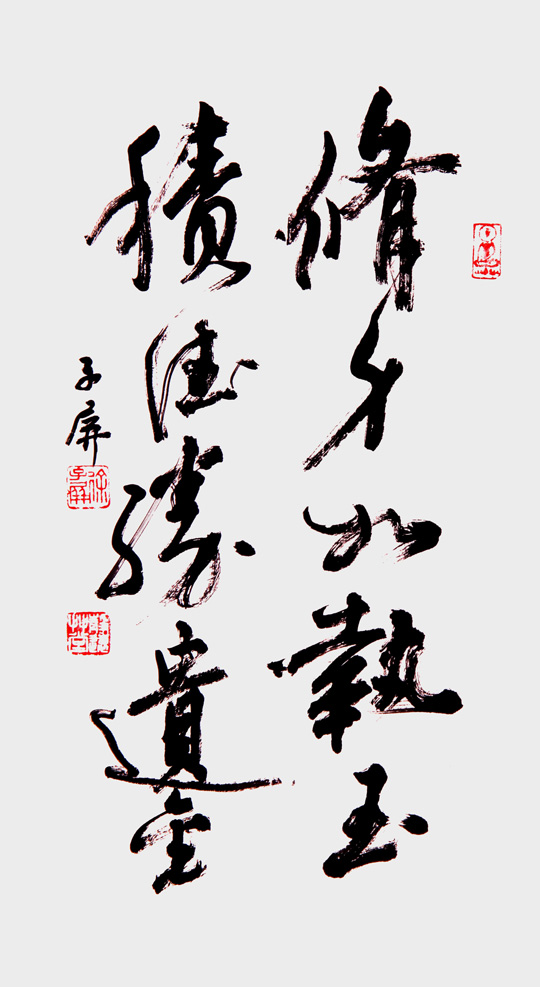 修身如執玉
積德勝遺金
子屏